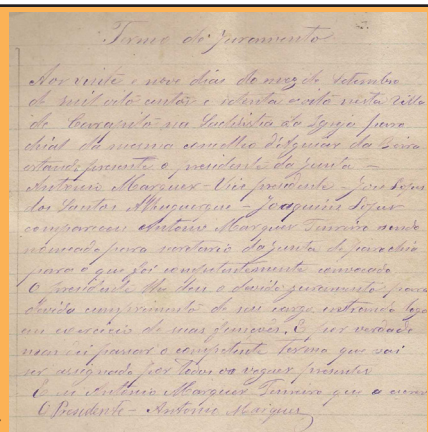 Termo de Juramento
Aos vinte e nove dias do mez de setembro
de mil oito centos e setenta e oito nesta Villa
de Carapito na Sachristia da Igreja paro
chial da mesma concelho d'Aguiar da Beira
estando presente o presidente da Junta -
Antonio Marques - Vice presidente - José Lopes
dos Santos Albuquerque - Joaquim Lopes
compareceu Antonio Marques Tenreiro sendo
nomeado para secretario da Junta de parochia
para o que foi competentemente convocado
O presidente lhe deu o devido juramento para
devido comprimento de seu cargo entrando logo
em exercicio de suas funcões. E por verdade
passar o competente termo que vai
ser assignado por todos os vogaes presentes
E eu Antonio Marques Tenreiro que a escrevi
O Presidente - Antonio Marques